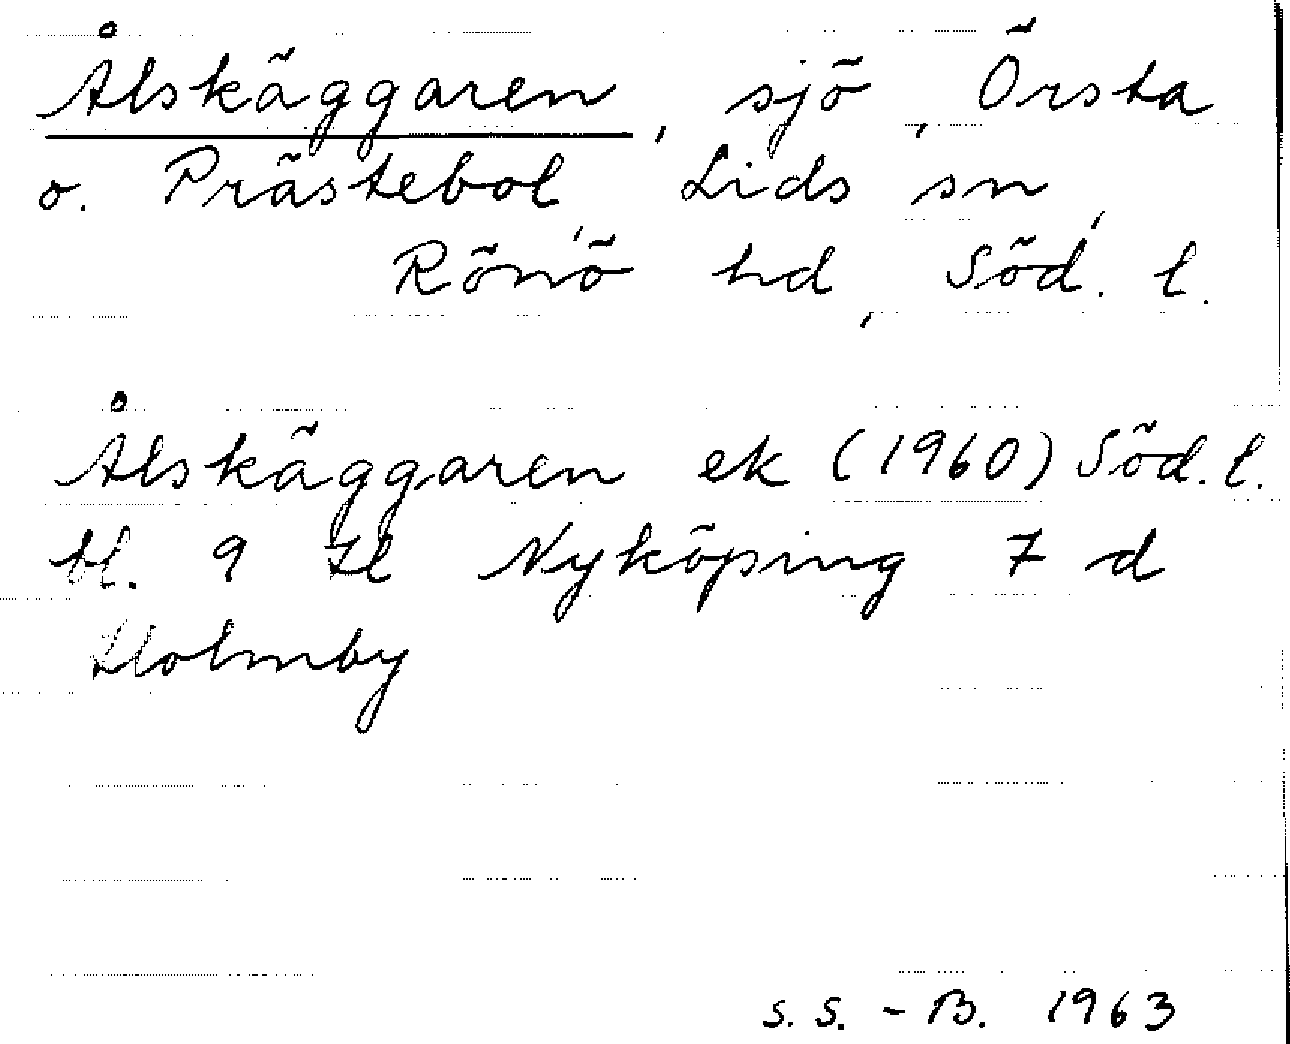 Ålskäggaren, sjö, Örsta
o. Prästebol, Lids sn,
Rönö hd, Söd. l.
Ålskäggaren ek (1960) Söd. l.
bl. 9 H Nyköping 7 d
Holmby
S. S. - B. 1963